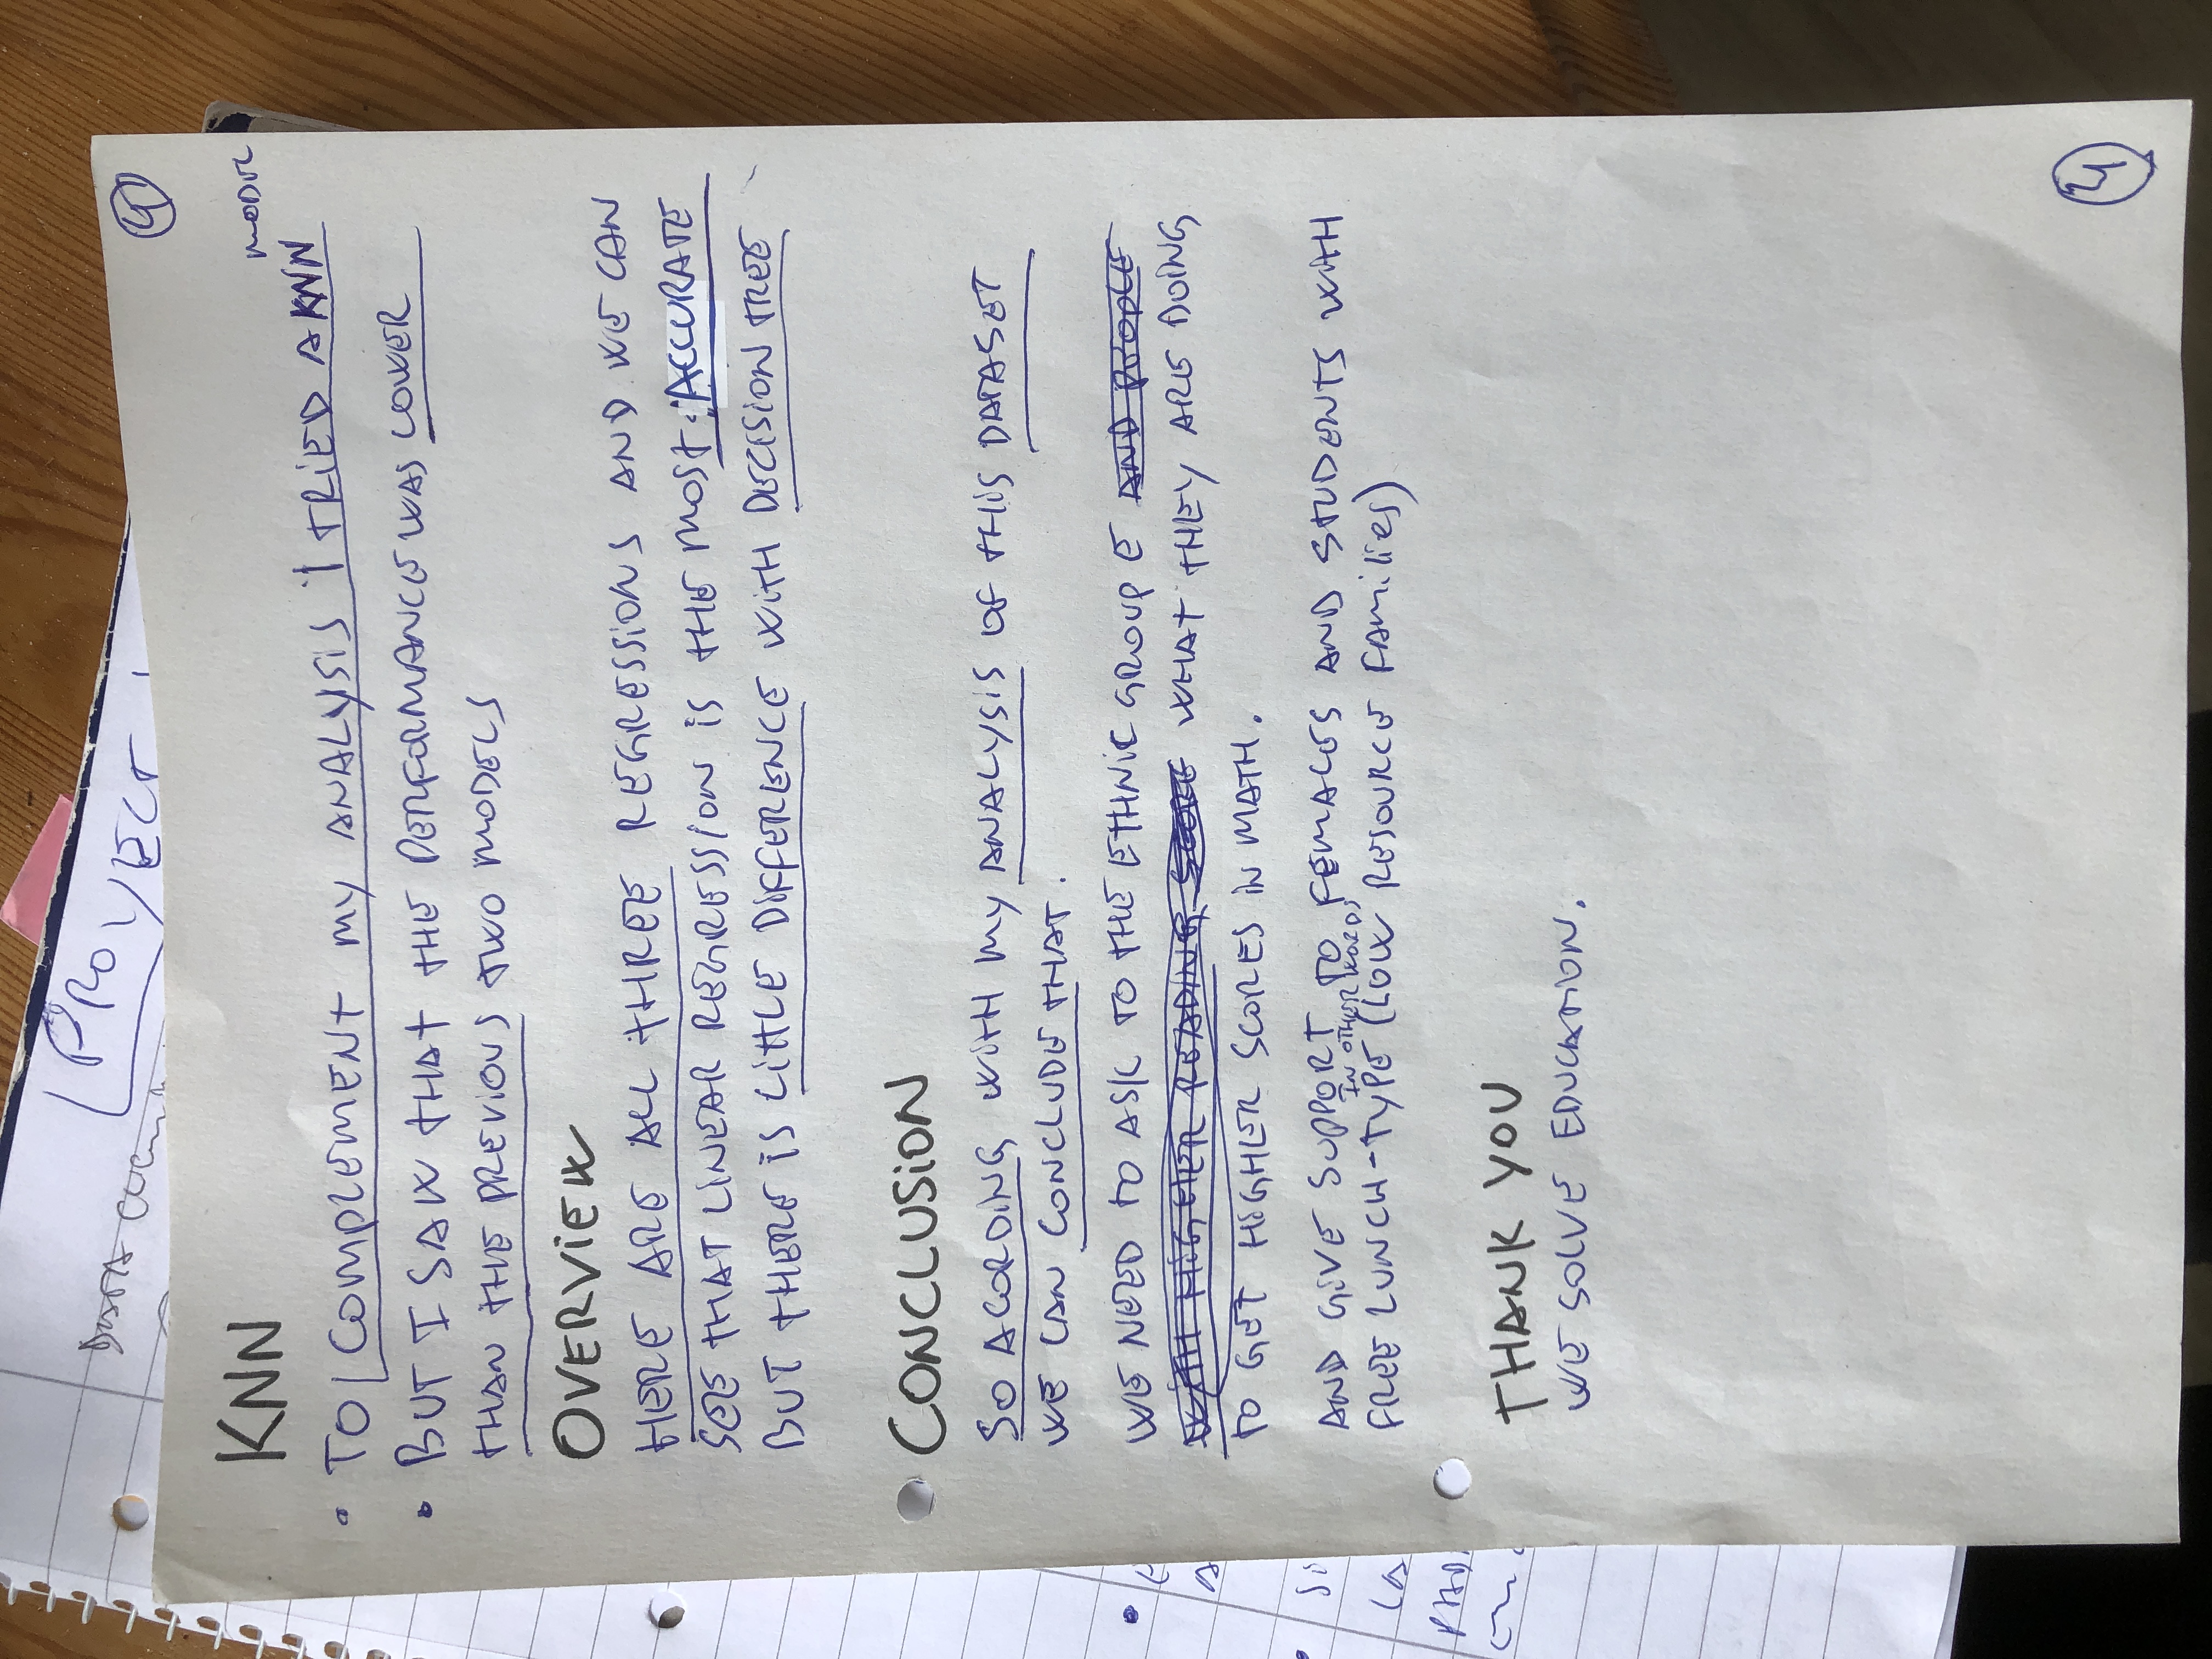 PROYECT
DATA
4
KNN
MODEL
• TO COMPLEMENT MY ANALYSIS I TRIED A KNN
• BUT I SAW THAT THE PERFORMANCE WAS LOWER
THAN THE PREVIOUS TWO MODELS
OVERVIEW
HERE ARE ALL THREE REGRESSIONS AND WE CAN
SEE THAT LINEAR REGRESSION IS THE MOST ACCURATE
BUT THERE IS LITTLE DIFFERENCE WITH DECISION TREE
CONCLUSION
SO ACORDING WITH MY ANALYSIS OF THIS DATASET
WE CAN CONCLUDE THAT.
WE NEED TO ASK TO THE ETHNIC GROUP E AND PEOPLE
WITH HIGHER READING SCORE WHAT THEY ARE DOING
TO GET HIGHER SCORES IN MATH.
AND GIVE SUPPORT TO FEMALES AND STUDENTS WITH
IN OTHER WORDS
FREE LUNCH-TYPE (LOW RESOURCE FAMILIES)
THANK YOU
WE SOLVE EDUCATION.
4